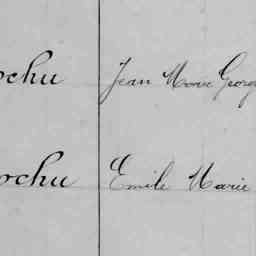 ochu Jean Marie Georg
ochu Emile Marie